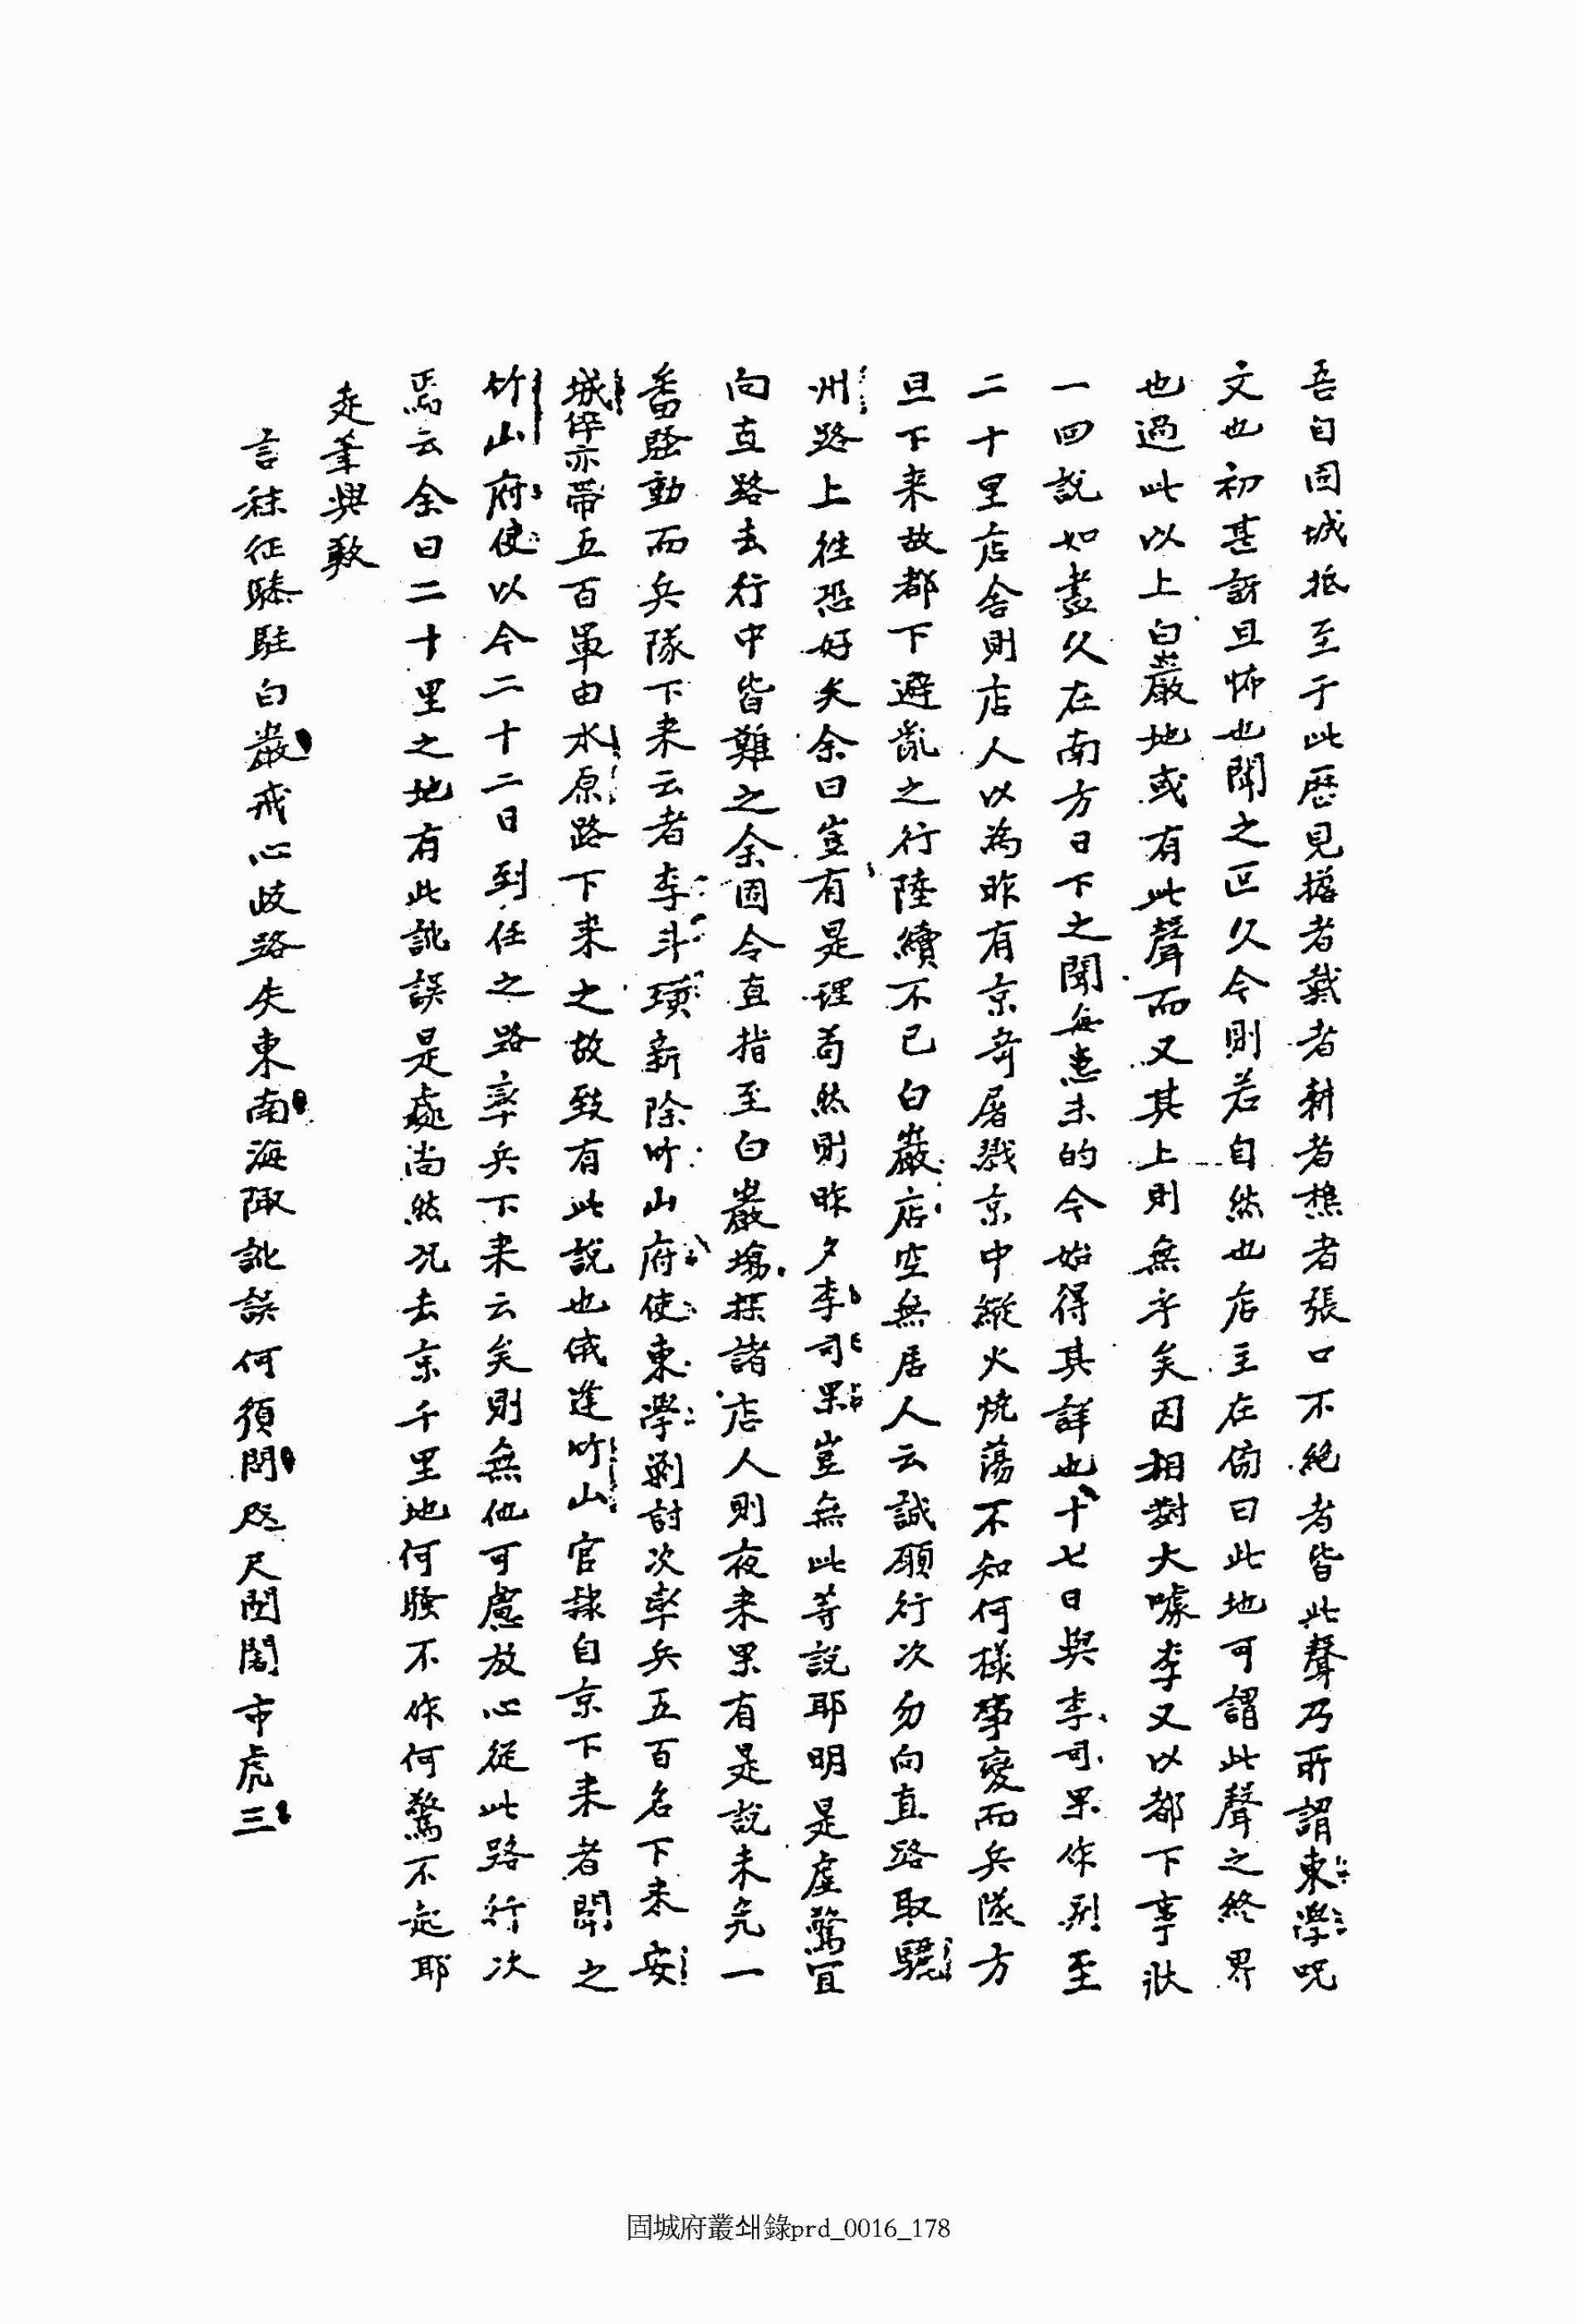 吾自固城抵至于此歷見擔者戴者耕者樵者張口不絶者皆此聲乃所謂東學呪
文也初甚訝且怖也聞之匹久今則若自然也店主在傍曰此地可謂此聲之終界
也過此以上白巖地或有此聲而又其上則無乎矣因相對大噱李又以都下事狀
一四說如盡久在南方日下之聞每患未的今始得其詳也十七日與李司果作別至
二十里店舍則店人以為昨有京奇屠戮京中縱火燒蕩不知何樣事變而兵隊方
旦下来故都下避亂之行陸續不已白巖店空無居人云誠願行次勿向直路取驪
州路上徃恐好矣余曰豈有是理苟然則昨夕李司果豈無此等說耶明是虛驚宜
向直路去行中皆難之余固令直指至白巖塲採諸店人則夜来果有是說未免一
番騷動而兵隊下来云者李斗璜新除竹山府使東學剿討次率兵五百名下来安
城倅亦帶五百軍由水原路下来之故致有此說也俄逢竹山官隸自京下来者聞之
竹山府使以今二十二日到任之路率兵下来云矣則無他可慮放心從此路行次
焉云余曰二十里之地有此訛誤是處尚然况去京千里地何騷不作何驚不起耶
走筆與敎
言秣征驂駐白巖戒心歧路失東南海陬訛誤何須問咫尺闉闍市虎三
固城府叢쇄錄prd_0016_178